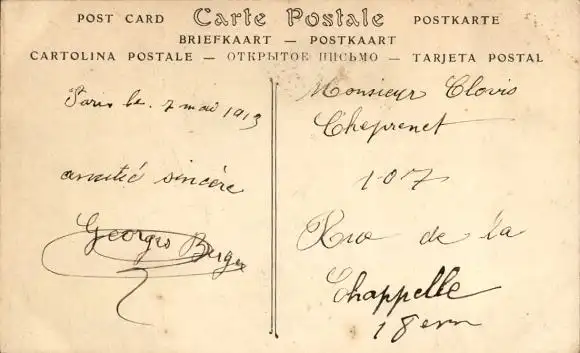 POST CARD Carte Postale POSTKARTE
BRIEFKAART — POSTKAART
CARTOLINA POSTALE — ОТКРЫТОЕ ПИСЬМО — TARJETA POSTAL
Paris le. 7 mai 1913
amitié sincère
Georges Berger
Monsieur Clovis
Cheprenet
107
Rue de la
Chappelle
18em